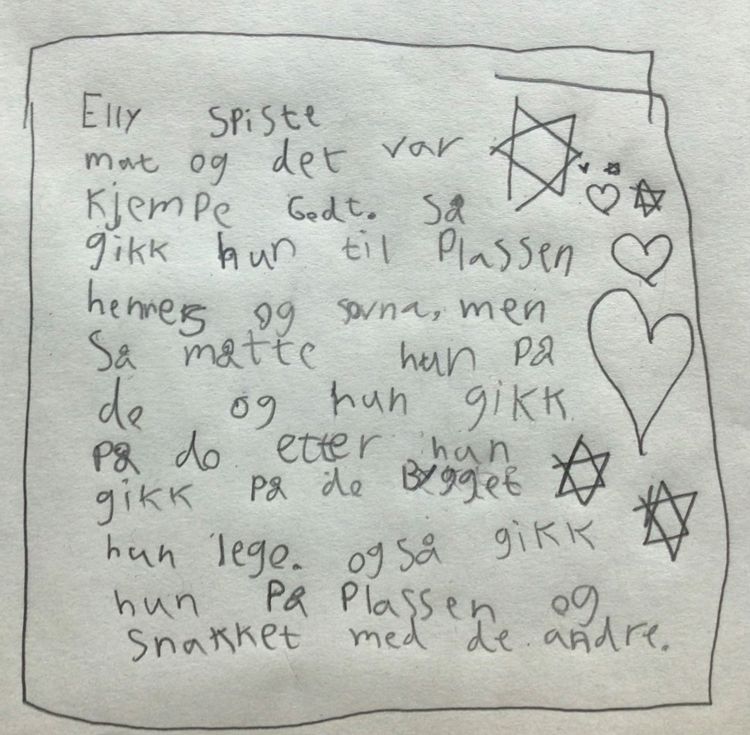 Elly spiste
mat og det var
kjempe Godt. Så
gikk hun til Plassen
hennes og sovna, men
Så måtte hun på
do og hun gikk
på do etter hun
gikk på do Bygget
hun lego. også gikk
hun På Plassen og
Snakket med de andre.